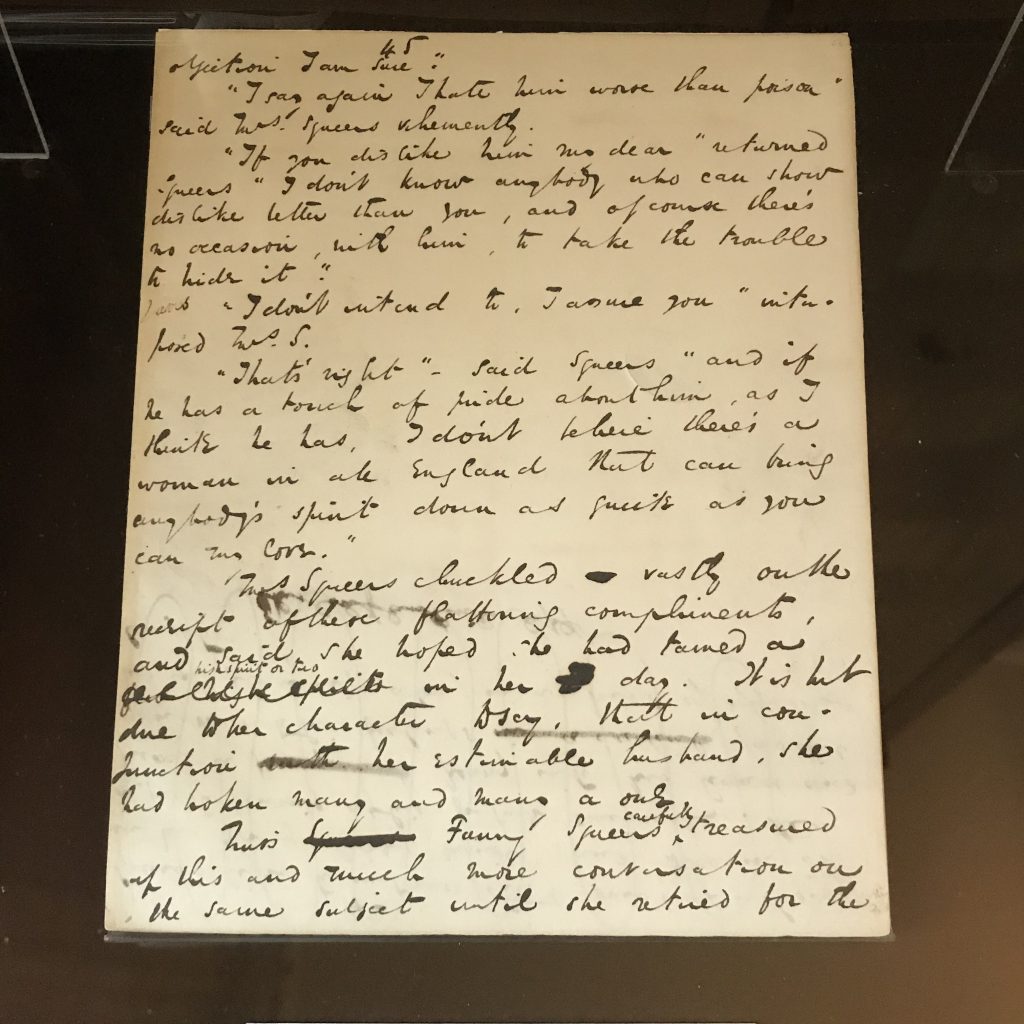 45
objection I am sure".
"I say again I hate him worse than poison"
said Mrs. Squeers vehemently.
"If you dislike him my dear" returned
Squeers "I don't know anybody who can show
dislike better than you, and of course there's
no occasion, with him, to take the trouble
to hide it".
"I don't intend to, I assure you" inter-
posed Mrs. S.
"That's right" - said Squeers "and if
he has a touch of pride about him, as I
think he has, I don't believe there's a
woman in all England that can bring
anybody's spirit down as quick as you
can my love."
Mrs Squeers chuckled vastly on the
receipt of these flattering compliments,
and said she hoped she had tamed a
high spirit or two
in her day. It is but
due to her character to say, that in con-
junction with her estimable husband, she
had broken many and many a one.
carefully
Miss Fanny Squeers treasured
up this and much more conversation on
the same subject until she retired for the